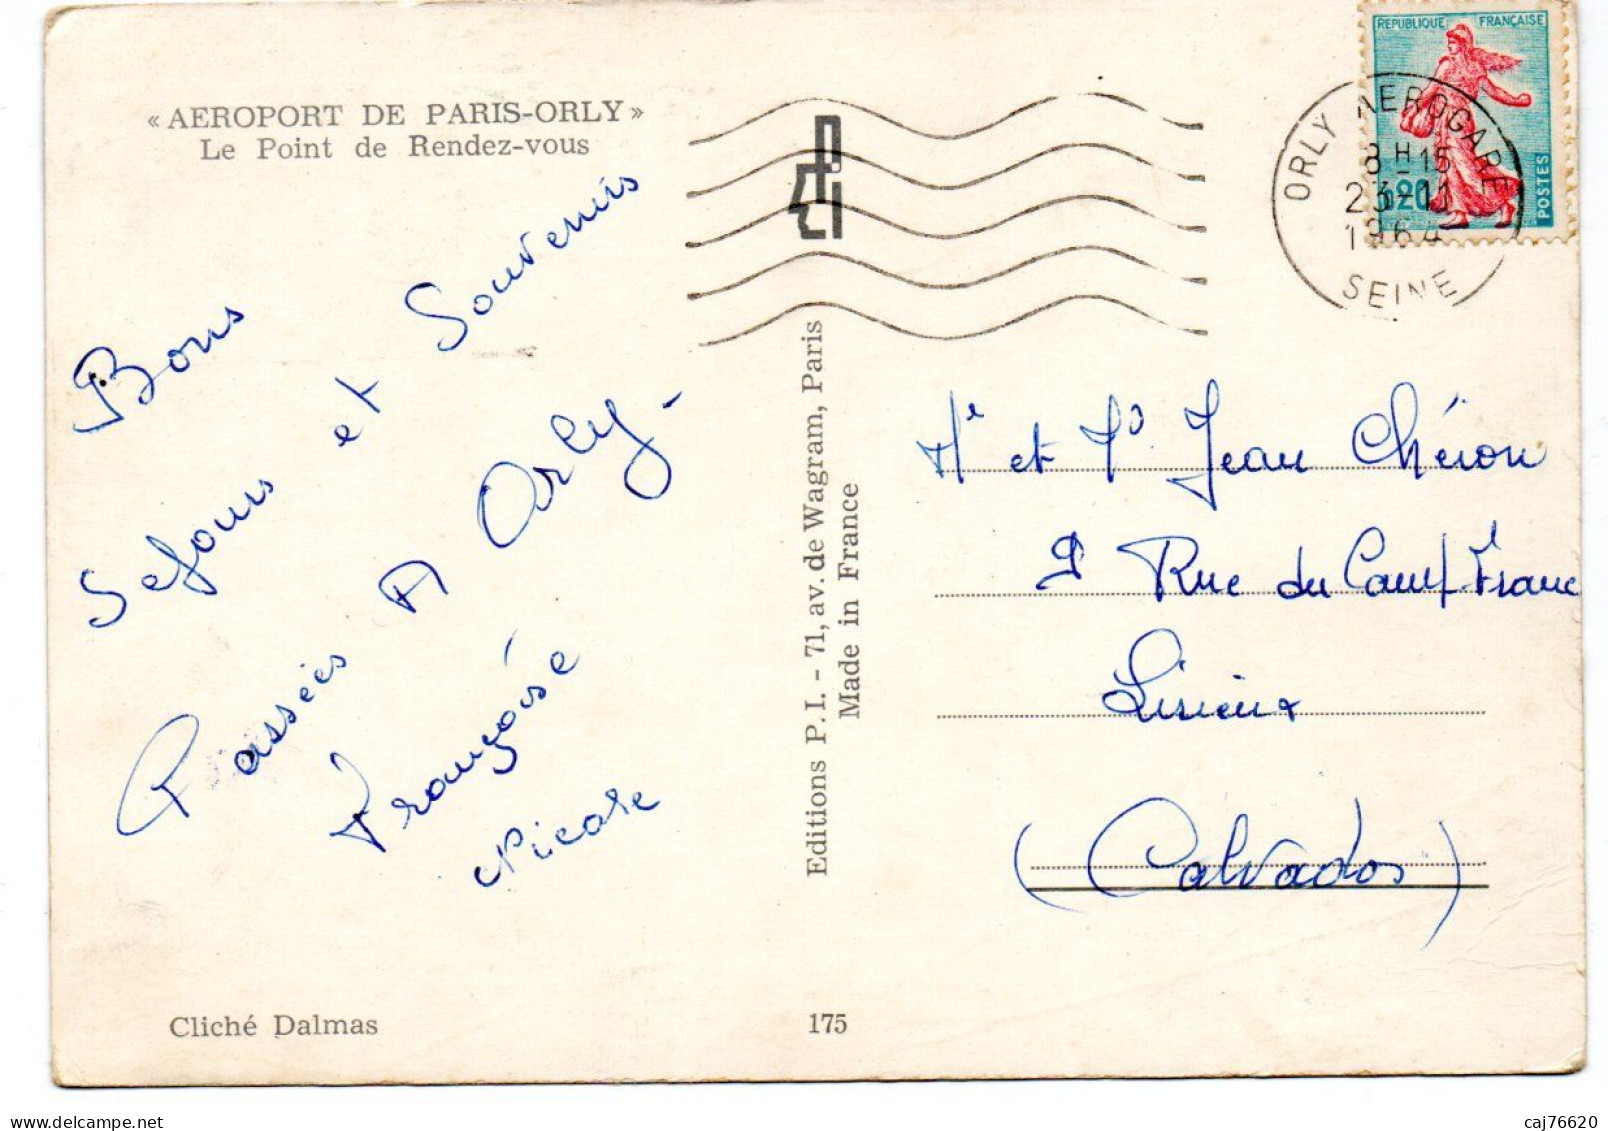 « AEROPORT DE PARIS-ORLY »
Le Point de Rendez-vous
Bons
Sejours et Souvenirs
Passées A Orly -
Françoise
Picare
Cliché Dalmas
Editions P. I. - 71, av. de Wagram, Paris
Made in France
175
REPUBLIQUE FRANÇAISE
0,20
POSTES
ORLY AEROGARE
8 H 15
23-11
1964
SEINE
et Jean Chéron
9 Rue du Camp Franc
Lisieux
(Calvados)
www.delcampe.net
caj76620